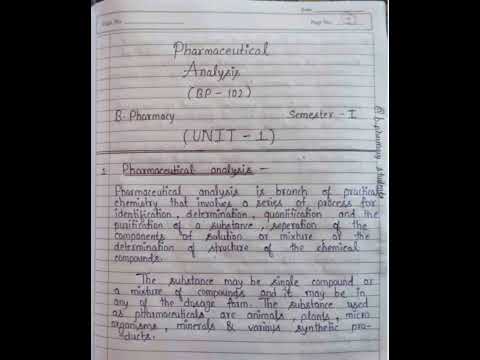 Date
Page No.
Pharmaceutical
Analysis
(BP - 102)
B. Pharmacy Semester - I
(UNIT - 1)
1. Pharmaceutical analysis -
Pharmaceutical analysis is branch of practical
chemistry that involves a series of process for
identification, determination, quantification and the
purification of a substance, seperation of the
components of solution or mixture or the
determination of structure of the chemical
compounds.
The substance may be single compound or
a mixture of compounds and it may be in
any of the dosage form. The substance used
as pharmaceuticals are animals, plants, micro
organisms, minerals & various synthetic pro-
ducts.